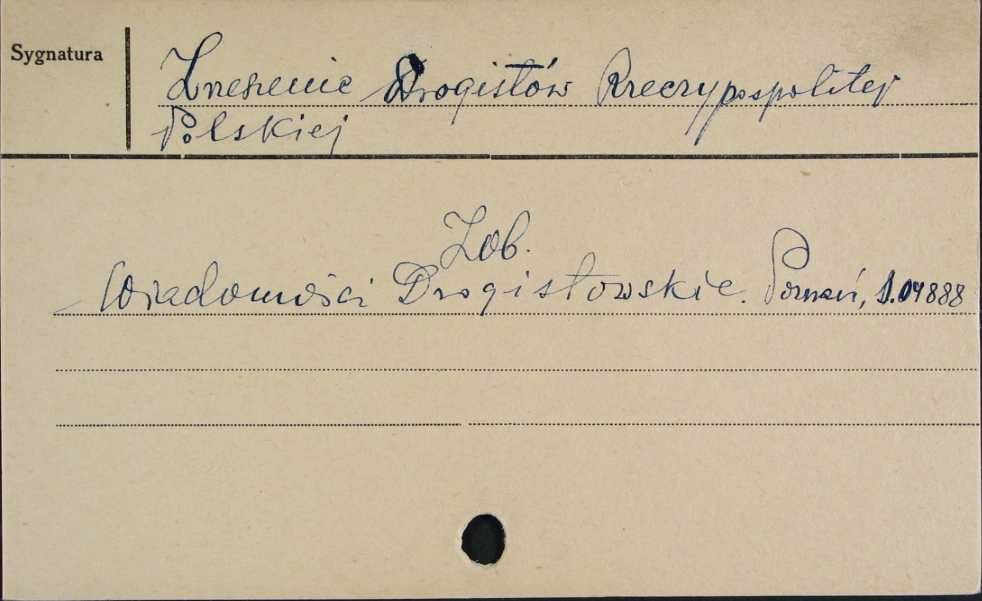 Sygnatura
Zrzeszenie Drogistów Rzeczypospolitej
Polskiej
Zob.
Wiadomości Drogistowskie. Poznań, S.04888